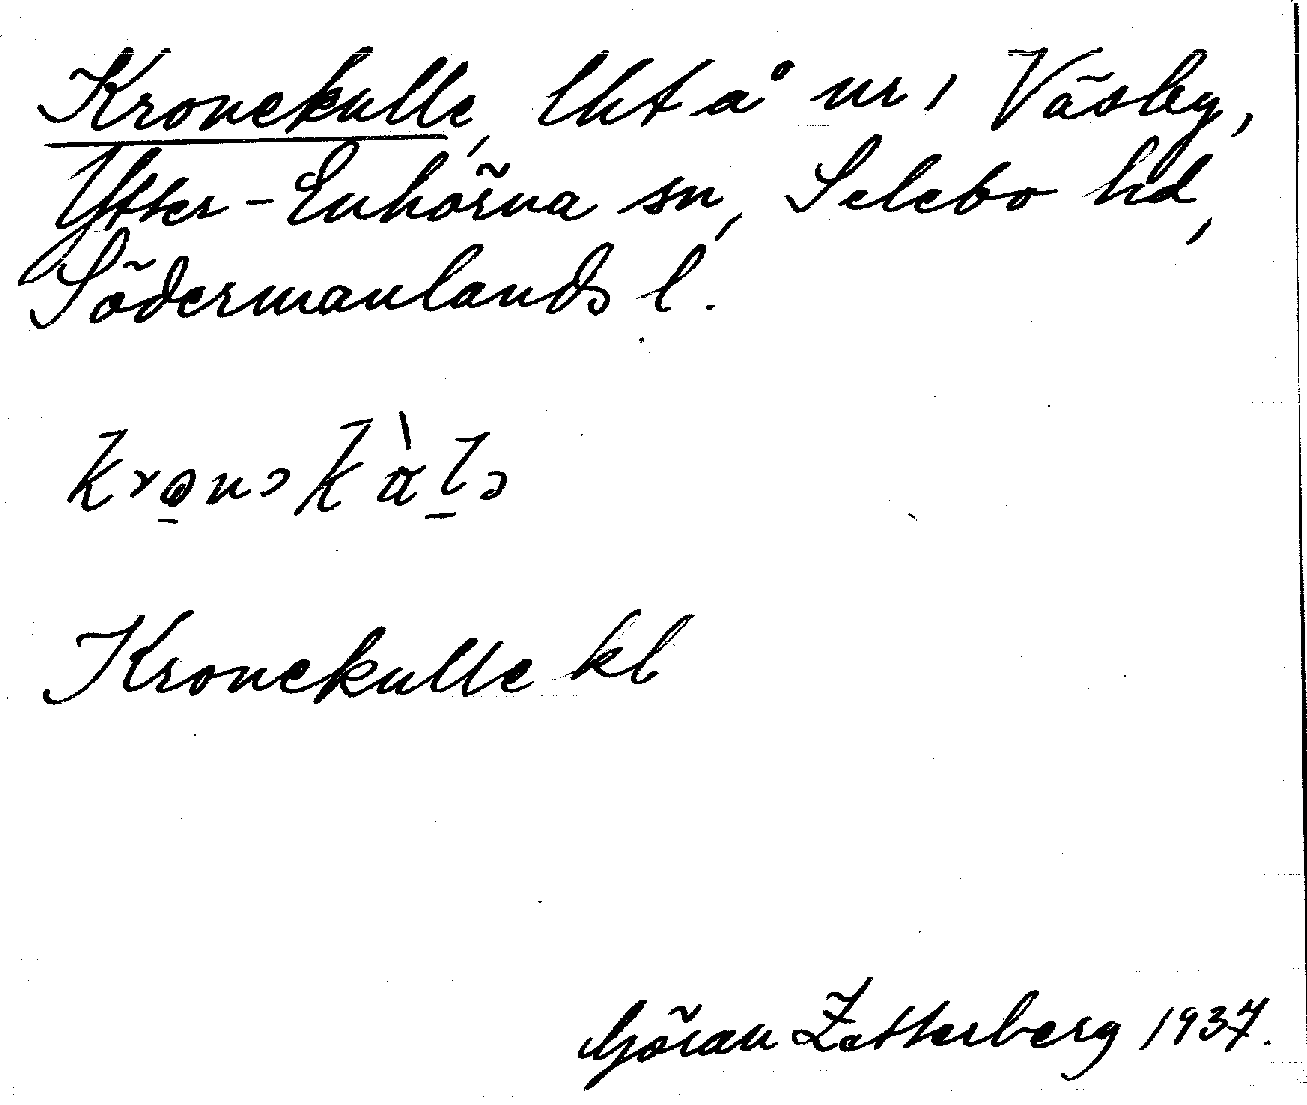 Kronekulle, lht å nr 1 Väsby,
Ytter-Enhörna sn, Selebo hd,
Södermanlands l.
kro̲nɔkàl̲ɔ
Kronekulle kl
Göran Zetterberg 1937.